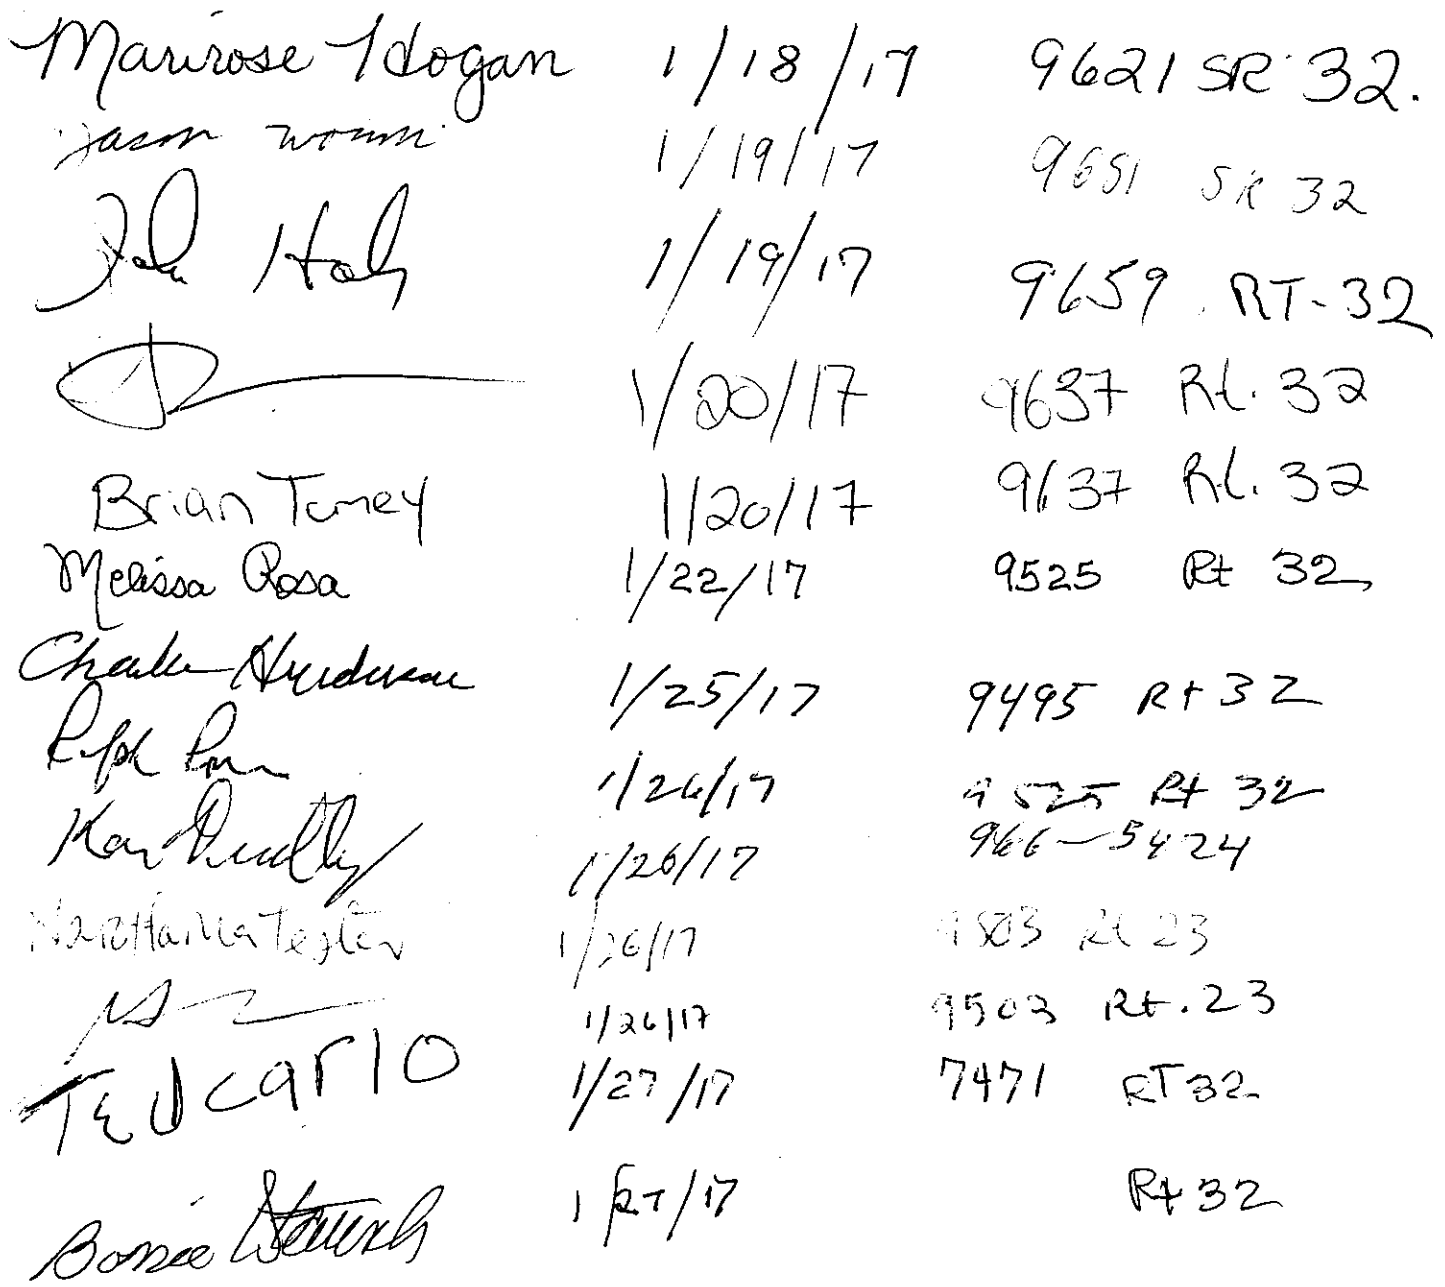 Marirose Hogan 1/18/17 9621 SR 32.
Jason 1/19/17 9651 SR 32
John 1/19/17 9659 RT-32
1/20/17 9637 Rt. 32
Brian Tumey 1/20/17 9637 Rt. 32
Melissa Rosa 1/22/17 9525 Rt 32
Charles Henderson 1/25/17 9495 Rt 32
Ralph 1/26/17 9525 Rt 32
Dudley 1/26/17 966-5424
Tester 1/26/17 9503 Rt 23
1/26/17 9503 Rt. 23
TEd carlo 1/27/17 7471 RT 32
Bonnie 1/27/17 Rt 32